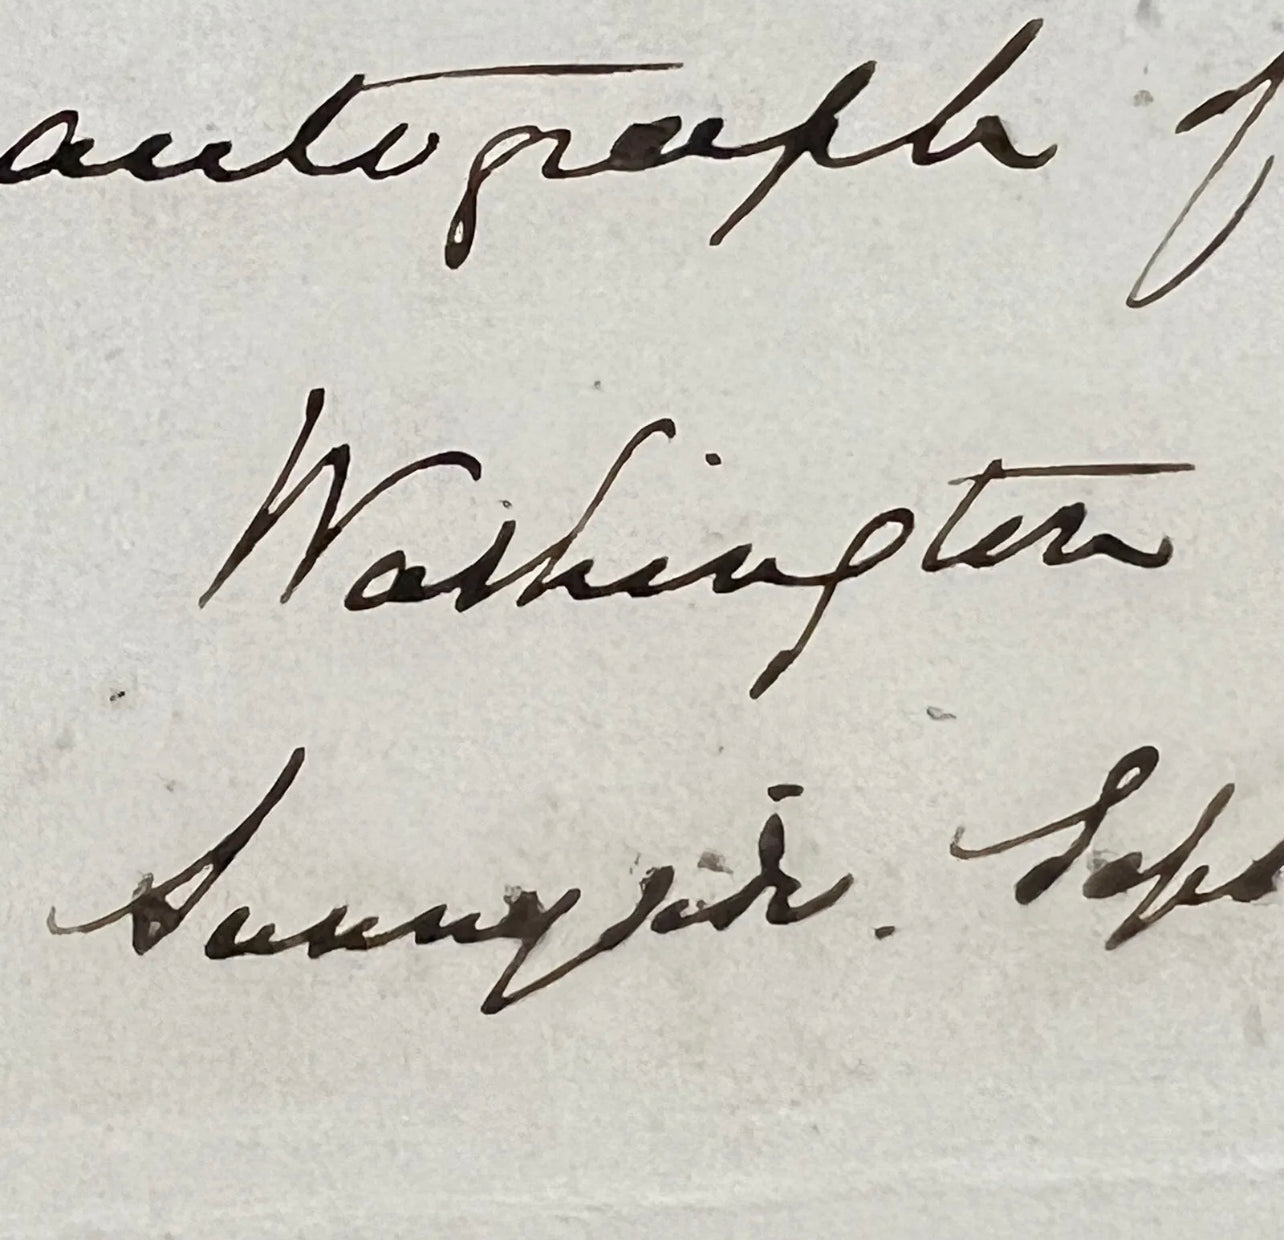 autograph of
Washington
Sunnyside. Sept